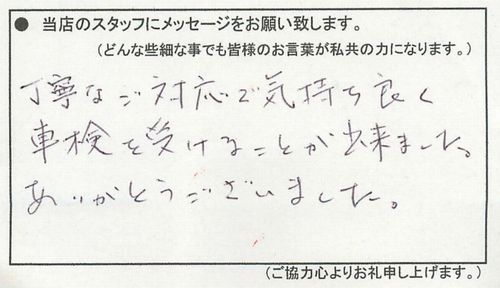 ● 当店のスタッフにメッセージをお願い致します。
(どんな些細な事でも皆様のお言葉が私共の力になります。)
丁寧なご対応で気持ち良く
車検を受けることが出来ました。
ありがとうございました。
(ご協力心よりお礼申し上げます。)